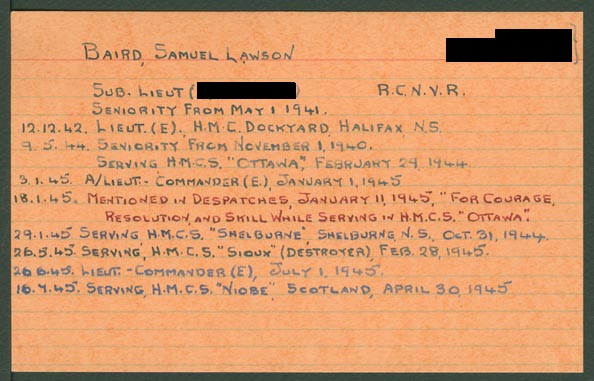 BAIRD, SAMUEL LAWSON
SUB. LIEUT ( ) R.C.N.V.R.
SENIORITY FROM MAY 1 1941.
12.12.42. LIEUT. (E). H.M.C. DOCKYARD, HALIFAX, N.S.
9.5.44. SENIORITY FROM NOVEMBER 1, 1940.
SERVING H.M.C.S. "OTTAWA", FEBRUARY 29, 1944.
3.1.45. A/LIEUT.- COMMANDER (E.), JANUARY 1, 1945
18.1.45. MENTIONED IN DESPATCHES, JANUARY 11, 1945, "FOR COURAGE,
RESOLUTION, AND SKILL WHILE SERVING IN H.M.C.S. "OTTAWA".
29.1.45 SERVING H.M.C.S. "SHELBURNE", SHELBURNE, N.S., OCT. 31, 1944.
26.5.45 SERVING, H.M.C.S. "SIOUX" (DESTROYER), FEB. 28, 1945.
26.6.45. LIEUT.-COMMANDER (E), JULY 1, 1945.
16.7.45. SERVING, H.M.C.S. "NIOBE", SCOTLAND, APRIL 30, 1945